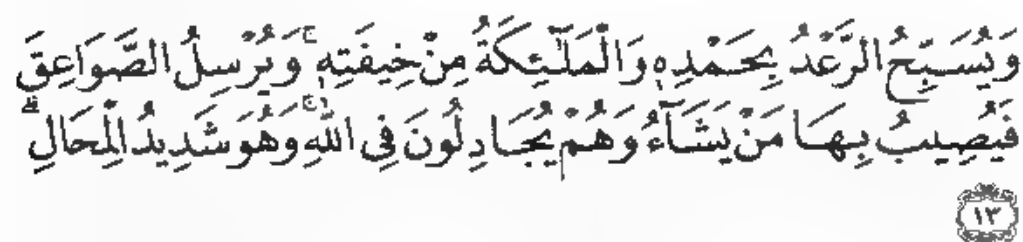 وَيُسَبِّحُ الرَّعْدُ بِحَمْدِهٖ وَالْمَلٰٓئِكَةُ مِنْ خِيفَتِهٖ ۚ وَيُرْسِلُ الصَّوَاعِقَ
فَيُصِيبُ بِهَا مَنْ يَشَآءُ وَهُمْ يُجَادِلُونَ فِى اللّٰهِ ۚ وَهُوَ شَدِيدُ الْمِحَالِ ۗ
١٣